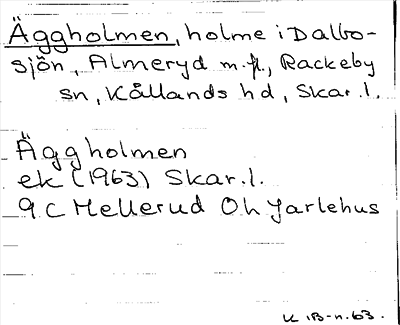 Äggholmen, holme i Dalbo-
sjön, Almeryd m.fl., Rackeby
sn, Kållands hd, Skar.l.
Äggholmen
ek (1963) Skar.l.
9 C Mellerud Ö h Jarlehus